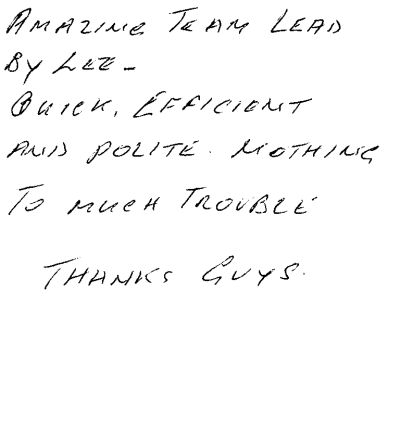 AMAZING TEAM LEAD
BY LEE -
QUICK, EFFICIENT
AND POLITE. NOTHING
TO MUCH TROUBLE
THANKS GUYS.